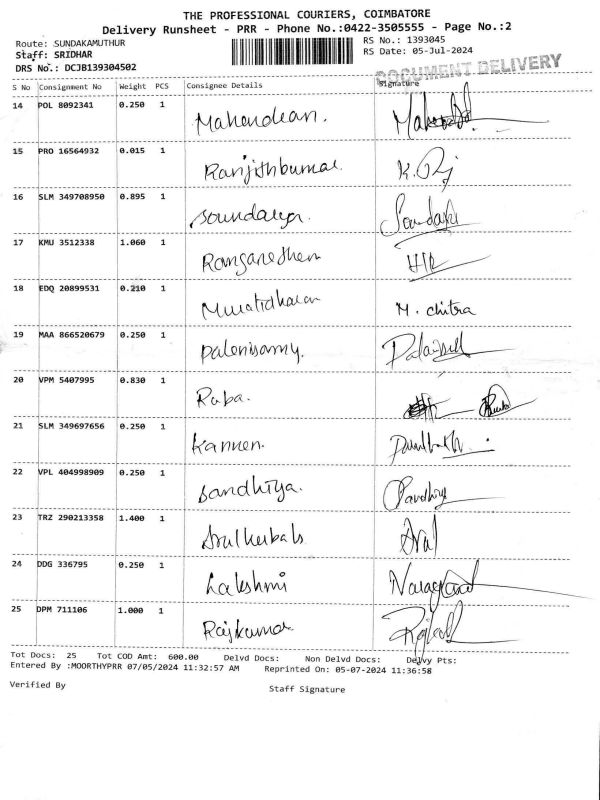 THE PROFESSIONAL COURIERS, COIMBATORE
Delivery Runsheet - PRR - Phone No.:0422-3505555 - Page No.:2
Route: SUNDAKAMUTHUR
RS No.: 1393045
Staff: SRIDHAR
RS Date: 05-Jul-2024
DRS No.: DCJB139304502
DOCUMENT DELIVERY
S No Consignment No Weight PCS Consignee Details Signature
14 POL 8092341 0.250 1 Mahendran.
15 PRO 16564932 0.015 1 Ranjithkumar. K.
16 SLM 349708950 0.895 1 Soundarya.
17 KMU 3512338 1.060 1
18 EDQ 20899531 0.210 1 M. chitra
19 MAA 866520679 0.250 1 Palenisamy.
20 VPM 5407995 0.830 1 Ruba.
21 SLM 349697656 0.250 1 Kannen.
22 VPL 404998909 0.250 1 Sandhiya. Sandhiya
23 TRZ 290213358 1.400 1 Arul
24 DDG 336795 0.250 1 Lakshmi
25 DPM 711106 1.000 1 Rajkumar
Tot Docs: 25 Tot COD Amt: 600.00 Delvd Docs: Non Delvd Docs: Delvy Pts:
Entered By :MOORTHYPRR 07/05/2024 11:32:57 AM Reprinted On: 05-07-2024 11:36:58
Verified By
Staff Signature